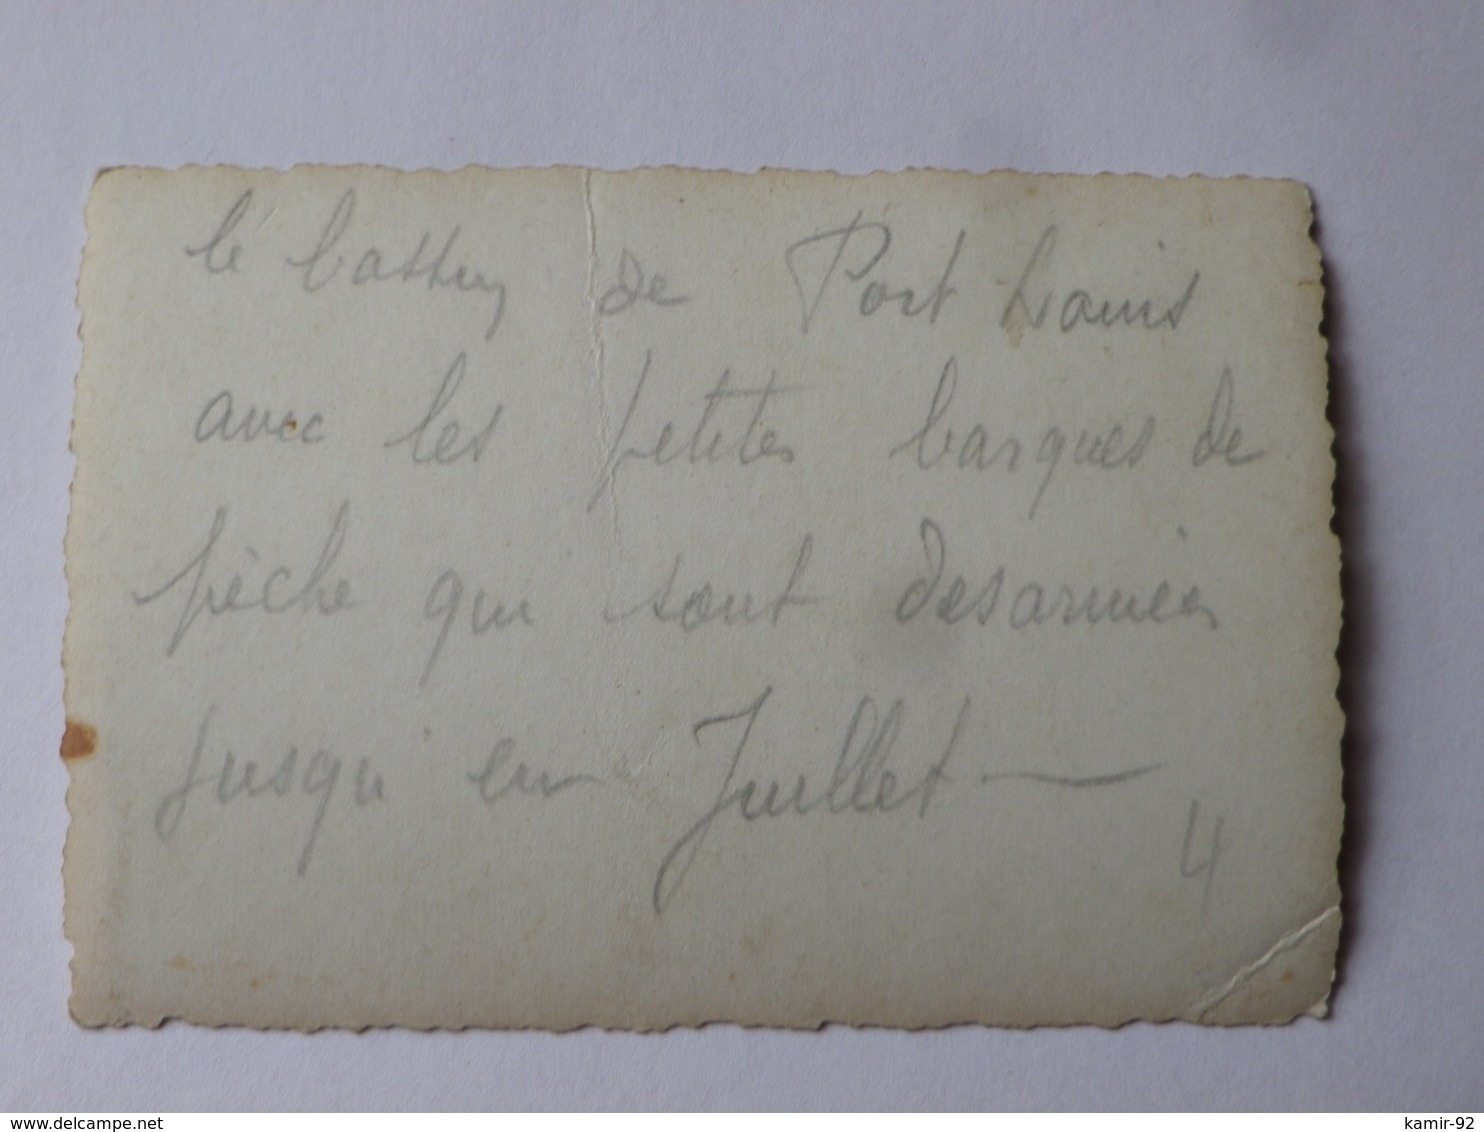 le bassin de Port Louis
avec les petites barques de
pèche qui sont desarmées
jusqu'en Juillet —
4
kamir-92